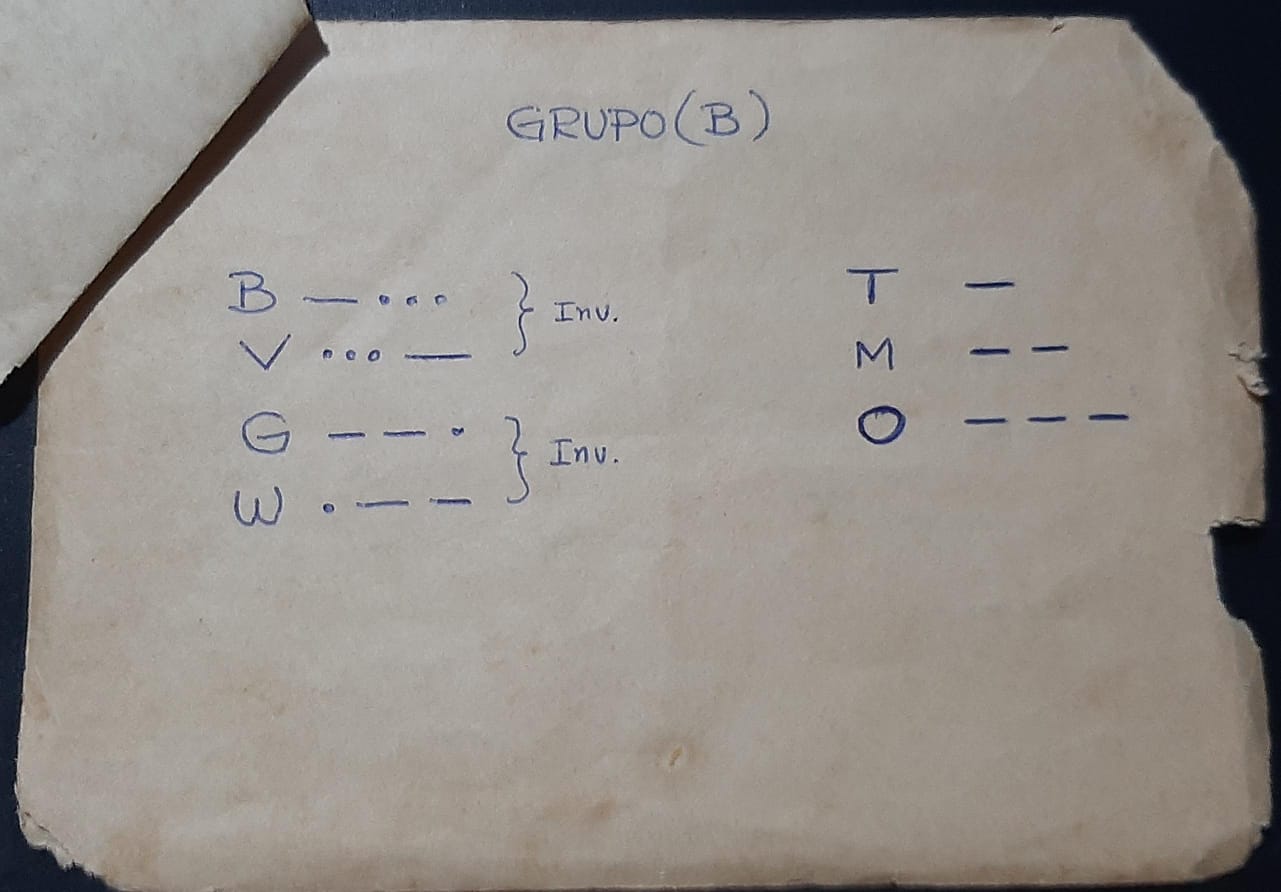 GRUPO(B)
B — • • •
V • • • —
} Inv.
G — — •
W • — —
} Inv.
T —
M — —
O — — —